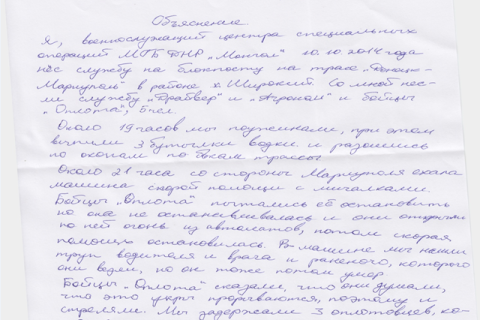 Объяснение
Я, военнослужащий центра специальных
операций МГБ ДНР "Монгол" 10.10.2014 года
нёс службу на блокпосту на трасе "Донецк-
Мариуполь" в районе х. Широкий. Со мной нес-
ли службу "Драйвер" и "Агроном" и бойцы
"Оплота", 5 чел.
Около 19 часов мы поужинали, при этом
выпили 3 бутылки водки и разошлись
по окопам по бокам трассы.
Около 21 часа со стороны Мариуполя ехала
машина скорой помощи с мигалками.
Бойцы "Оплота" пытались её остановить
но она не останавливалась и они открыли
по ней огонь из автоматов, потом скорая
помощь остановилась. В машине мы нашли
труп водителя и врача и раненого, которого
они везли, но он тоже потом умер.
Бойцы "Оплота" сказали, что они думали,
что это укры прорываются, поэтому и
стреляли. Мы задержали 3 оплотовцев, ко-